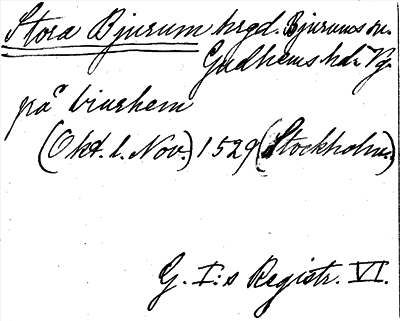 Stora Bjurum hrgd. Bjurums sn.
Gudhems hd. Vg.
på biurhem
(Okt. l. Nov.) 1529 (Stockholm)
G. I:s Registr. VI.